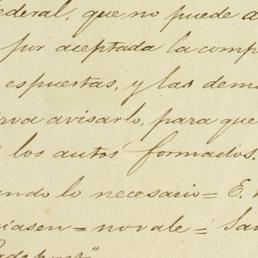 ederal, que no puede a
por aceptada la comp
espuestas, y las dem
rva avisarlo, para que
los autos formados.
ando lo necesario = E.
iasen = no vale = San